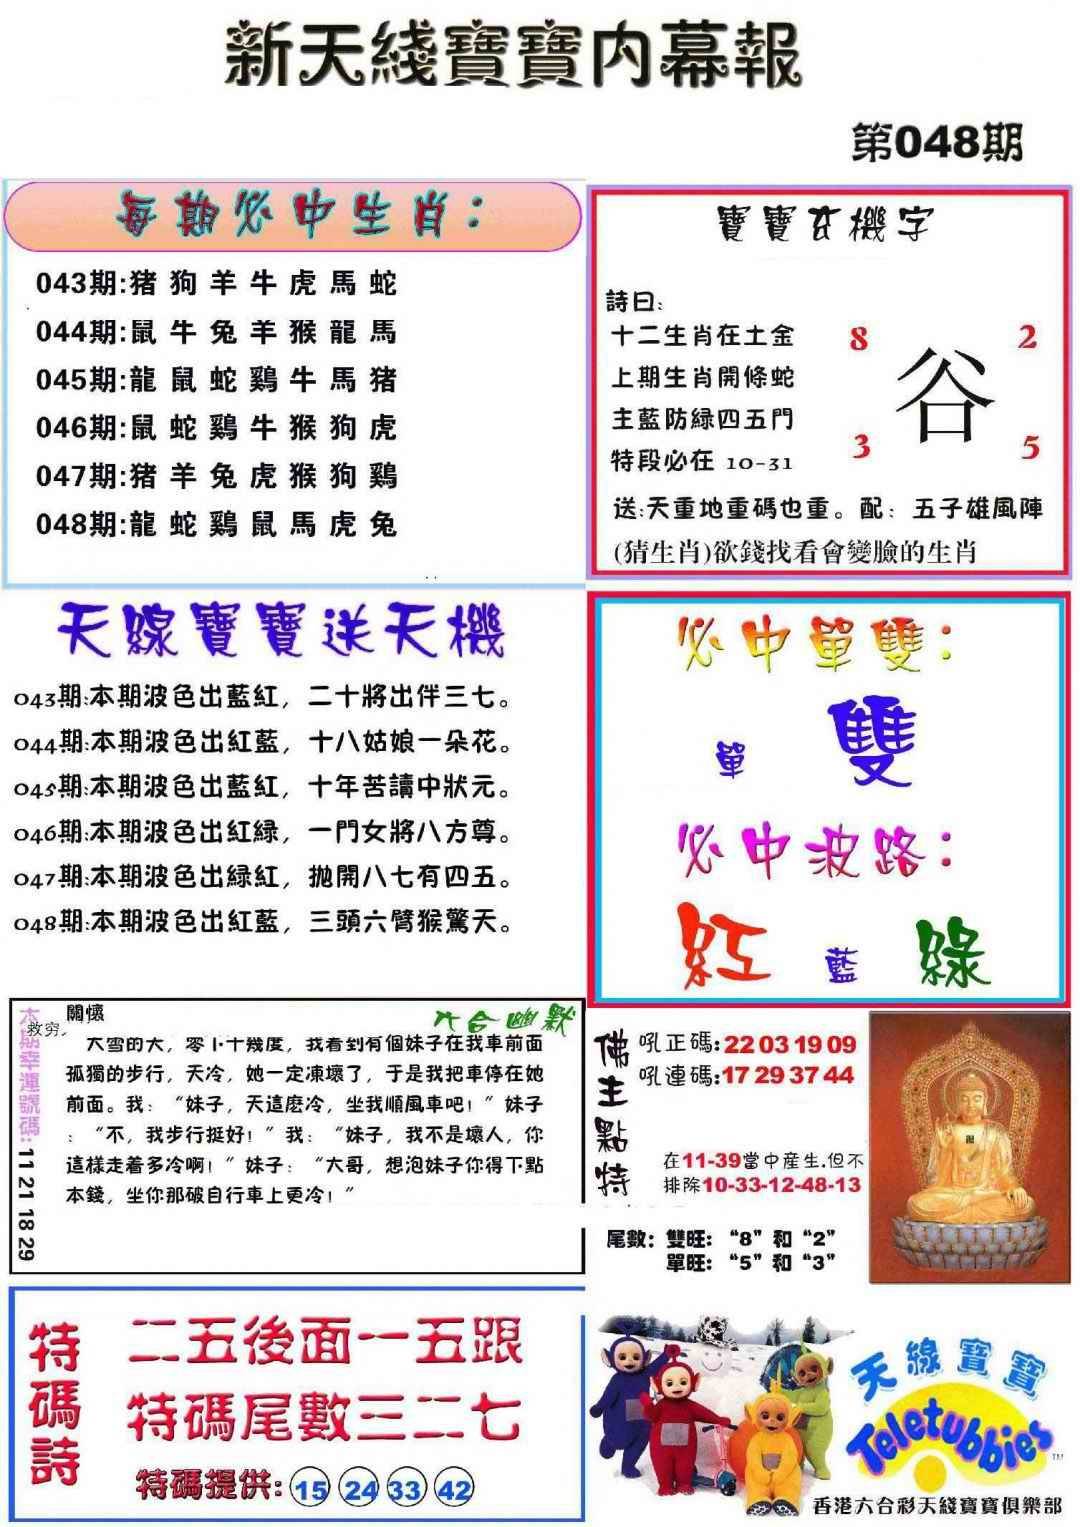 新天綫寶寶内幕報
第048期
每期必中生肖：
043期:猪狗羊牛虎馬蛇
044期:鼠牛兔羊猴龍馬
045期:龍鼠蛇鷄牛馬猪
046期:鼠蛇鷄牛猴狗虎
047期:猪羊兔虎猴狗鷄
048期:龍蛇鷄鼠馬虎兔
寶寶玄機字
詩曰:
十二生肖在土金
上期生肖開條蛇
主藍防緑四五門
特段必在 10-31
8
2
谷
3
5
送:天重地重碼也重。配：五子雄風陣
(猜生肖)欲錢找看會變臉的生肖
天線寶寶送天機
043期:本期波色出藍紅，二十將出伴三七。
044期:本期波色出紅藍，十八姑娘一朵花。
045期:本期波色出藍紅，十年苦讀中狀元。
046期:本期波色出紅緑，一門女將八方尊。
047期:本期波色出緑紅，抛開八七有四五。
048期:本期波色出紅藍，三頭六臂猴驚天。
必中單雙：
單 雙
必中波路：
紅 藍 綠
本期幸運號碼: 11 21 18 29
六合幽默
關懷
救穷。
大雪的天，零下十幾度，我看到有個妹子在我車前面
孤獨的步行，天冷，她一定凍壞了，于是我把車停在她
前面。我：“妹子，天這麽冷，坐我順風車吧！”妹子
：“不，我步行挺好！”我：“妹子，我不是壞人，你
這樣走着多冷啊！”妹子：“大哥，想泡妹子你得下點
本錢，坐你那破自行車上更冷！”
佛主點特
吼正碼:22 03 19 09
吼連碼:17 29 37 44
在11-39當中産生.但不
排除10-33-12-48-13
尾數：雙旺：“8”和“2”
單旺：“5”和“3”
特碼詩
二五後面一五跟
特碼尾數三二七
特碼提供: 15 24 33 42
天線寶寶
Teletubbies
TM
香港六合彩天綫寶寶俱樂部